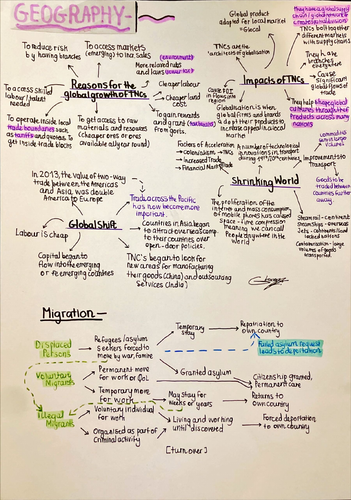 GEOGRAPHY-
To reduce risk
by having branches
To access markets
(emerging) to inc. sales
(environmental)
More relaxed rules
and laws
To access skilled
labour/talent
needed
Reasons for the
global growth of TNCs
Cheaper labour
Cheaper land
cost
To operate inside local
trade boundaries
as tariffs and quotas to
get inside trade blocks
To get access to raw
materials and resources
(cheaper ones or ones
available all year round)
To gain rewards
and grants
from govts.
Global product
adapted for local market
= Glocal
TNCs are the
'architects of globalisation'
They have a global supply
chain / global network
TNCs both together
different markets
with supply chains
They have
branches
everywhere
Impacts of TNCs
Cause
significant
global flows of
trade
They help shape global
cultures, consumption of
products across many
nations
Globalisation is when
global firms and brands
adapt their products to
increase appeal in a local
market
Factors of Acceleration
→ colonialism → TNCs
→ Increased Trade
→ Financial Markets
A number of technological
innovations in transport
during 19th/20th century
Improvements to
Transport
Goods to be
traded between
countries further
away
Shrinking World
The proliferation of the
internet and mass consumption
of mobile phones has caused
space-time compression
meaning we can call
people anywhere in the
world
Steamrail - continental
Steamships - oceans
Jets - connect small
landlocked nations
Containerisation - large
volumes of goods
transported
In 2013, the value of two-way
trade between the Americas
and Asia, was double
America to Europe
Trade across the Pacific
has now become more
important.
Global Shift
Labour is cheap
Countries in Asia began
to attract overseas comp.
to their countries over
open-door policies.
Capital began to
flow into the emerging
or re emerging countries
TNC's began to look for
new areas for manufacturing
their goods (China) and outsourcing
services (India)
Migration-
Displaced
Persons
Refugees/asylum
seekers forced to
move by war, famine
Temporary
stay
Repatriation to
own country
Failed asylum request
leads to deportation
Voluntary
Migrants
Permanent move
for work or QoL
Granted asylum
Citizenship granted,
Permanent care
Temporary move
for work
May stay for
weeks or years
Returns to
Own country
Illegal
Migrants
Voluntary individual
for work
Organised as part of
criminal activity
Living and working
until discovered
Forced deportation
to own country
[turn over]